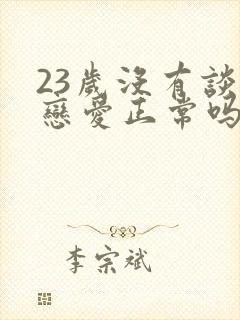 23歲沒有談
戀愛正常吗
李宗斌